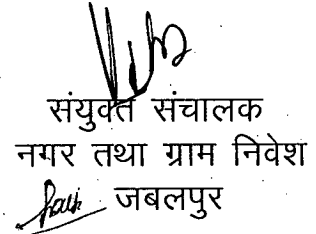 संयुक्त संचालक
नगर तथा ग्राम निवेश
जबलपुर